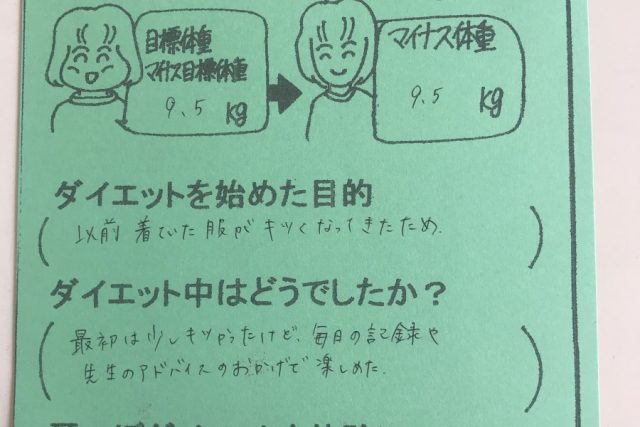 目標体重
マイナス目標体重
9.5 kg
マイナス体重
9.5 kg
ダイエットを始めた目的
以前着ていた服がキツくなってきたため.
ダイエット中はどうでしたか？
最初は少しキツかったけど、毎日の記録や
先生のアドバイスのおかげで楽しめた.